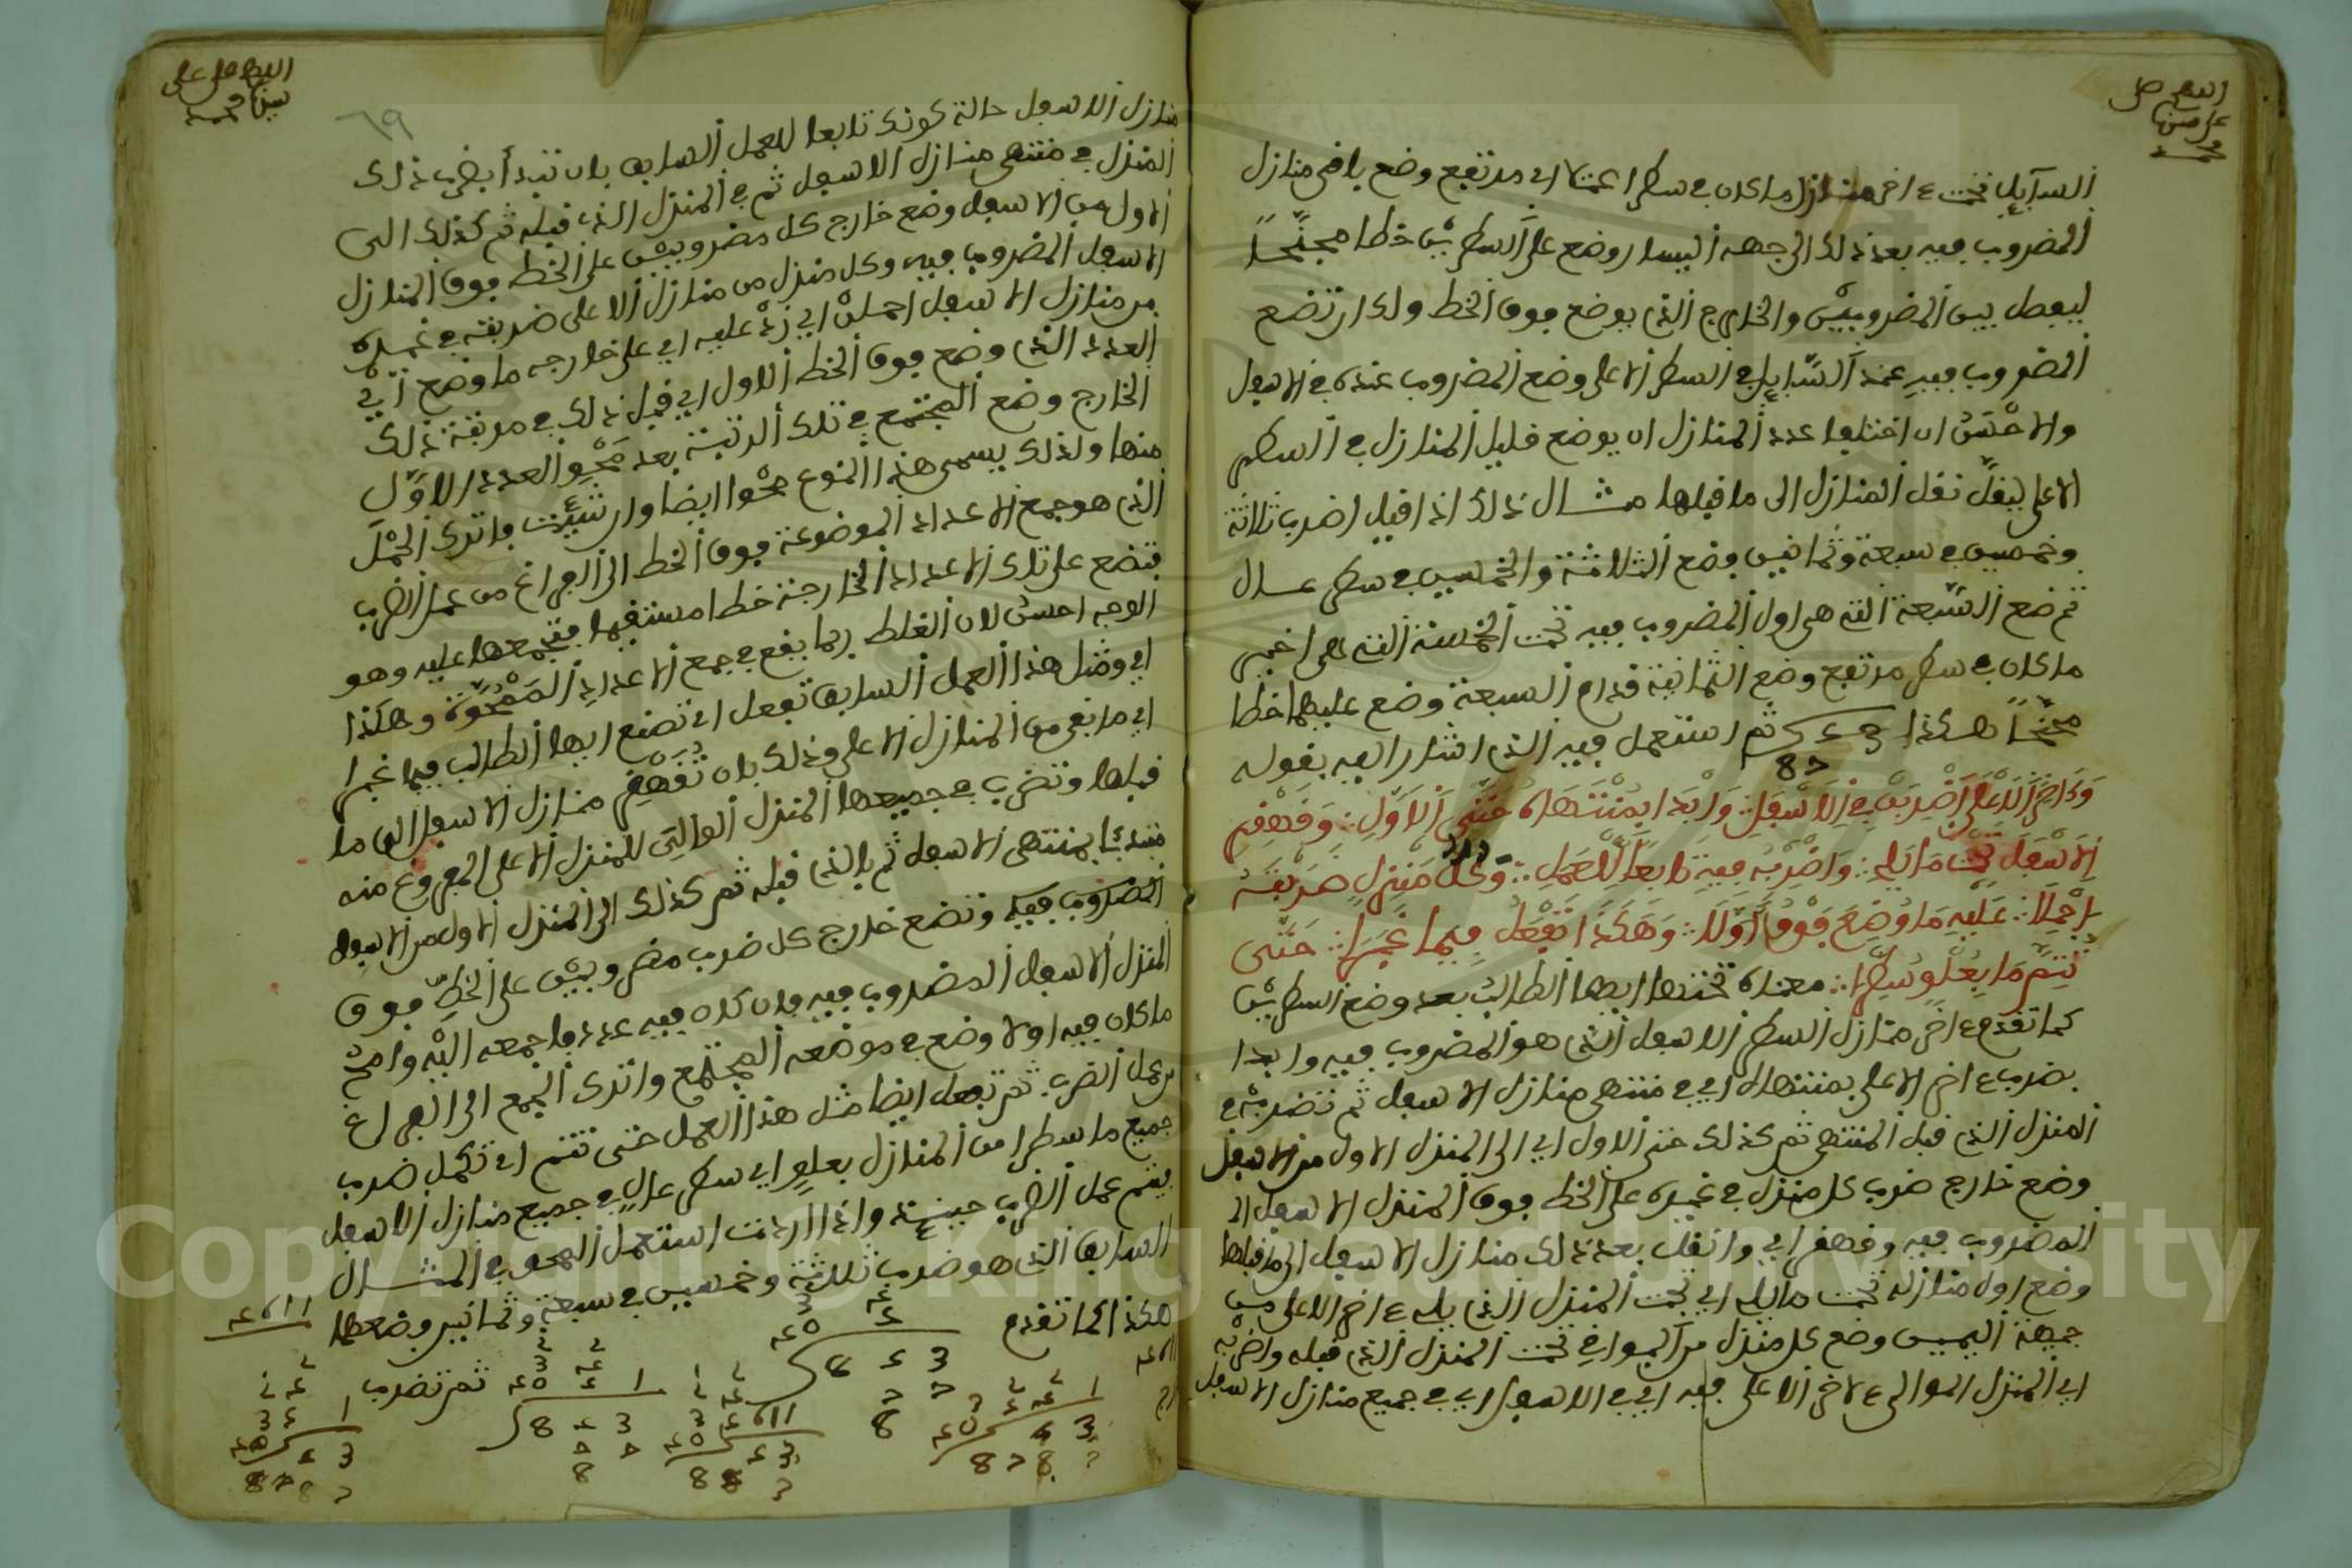 السائل تحت اخر منازل ما كان في سطر اعتلا اي مرتفع وضع باقي منازل
المضروب فيه بعد ذلك الى جهة اليسار وضع على السطرين خطا مجنحا
ليفصل بين المضروبين والخارج الذي يوضع فوق الخط ولك ان تضع
المضروب فيه عند السائل في السطر الاعلى وضع المضروب عنده في الاسفل
والاحسن ان اختلفا عدد المنازل ان يوضع قليل المنازل في السطر
الاعلى ليقل نقل المنازل الى ما قبلها مثال ذلك اذا قيل اضرب ثلاثة
وخمسين في سبعة وثمانين فضع الثلاثة والخمسين في سطر عال
ثم ضع السبعة التي هي اول المضروب فيه تحت الخمسة التي هي اخير
ما كان في سطر مرتفع وضع الثمانية قدام السبعة وضع عليهما خطا
مجنحا هكذا ثم استعمل فيه الذي اشار اليه بقوله
وآخر الاعلى اضربن في الاسفل وابدا بمنتهاه حتى الاول وقهقر
الاسفل تحت ما يلي واضربه فيه تابعا للعمل وكل منزل ضربته
احملا عليه ما وضع فوق اولا وهكذا تفعل فيما غبرا حتى
تتم ما بعلو سطرا معناه تحتها ايها الطالب بعد وضع السطرين
كما تقدم اخر منازل السطر الاسفل الذي هو المضروب فيه وابدا
بضرب اخر الاعلى بمنتهاه اي في منتهى منازل الاسفل ثم تضربه في
المنزل الذي قبل المنتهى ثم كذلك حتى الاول اي الى المنزل الاول من الاسفل
وضع خارج ضرب كل منزل في غيره على الخط فوق المنزل الاسفل
المضروب فيه وقهقر اي وانقل بعد ذلك منازل الاسفل الى ما قبلها
وضع اول منازله تحت ما يليه اي تحت المنزل الذي يليه اخر الاعلى من
جهة اليمين وضع كل منزل من البواقي تحت المنزل الذي قبله واضربه
اي المنزل الموالي لاخر الاعلى فيه اي في الاسفل اي في جميع منازل الاسفل
٦٩
منازل الاسفل حالة كونك تابعا للعمل السابق بان تبدأ بضرب ذلك
المنزل في منتهى منازل الاسفل ثم في المنزل الذي قبله ثم كذلك الى
الاول من الاسفل وضع خارج كل مضروبين على الخط فوق المنازل
الاسفل المضروب فيه وكل منزل من منازل الاعلى ضربته في غيره
من منازل الاسفل احملن اي زد عليه اي على خارجه ما وضع اي
العدد الذي وضع فوق الخط الاول اي قبل ذلك في مرتبة ذلك
الخارج وضع المجتمع في تلك المرتبة بعد محو العدد الاول
منها ولذلك يسمى هذا النوع محوا ايضا وان شئت فاترك الحمل
الذي هو جمع الاعداد الموضوعة فوق الخط الى الفراغ من عمل الضرب
فتضع على تلك الاعداد الخارجة خطا مستقيما فتجمعها عليه وهو
الوجه احسن لان الغلط ربما يقع في جمع الاعداد الممحوة وهكذا
اي ومثل هذا العمل السابق تفعل اي تصنع ايها الطالب فيما غبرا
اي ما بقي من المنازل الاعلى وذلك بان تقهقر منازل الاسفل الى ما
قبلها وتضرب في جميعها المنزل الموالي للمنزل الاعلى المفروغ منه
مبتدئا بمنتهى الاسفل ثم بالذي قبله ثم كذلك الى المنزل الاول من الاسفل
المضروب فيه وتضع خارج كل ضرب مضروبين على الخط فوق
المنزل الاسفل المضروب فيه فان كان فيه عدد فاجمعه اليه وامح
ما كان فيه اولا وضع في موضعه المجتمع واترك الجمع الى الفراغ
من عمل الضرب ثم تفعل ايضا مثل هذا العمل حتى تتم اي تكمل ضرب
جميع ما سطرا من المنازل بعلو اي سطر عال في جميع منازل الاسفل
فيتم عمل الضرب حينئذ واذا اردت استعمل المحو في المثال
السابق الذي هو ضرب ثلاثة وخمسين في سبعة وثمانين وضعهما
هكذا كما تقدم
ثم تضرب